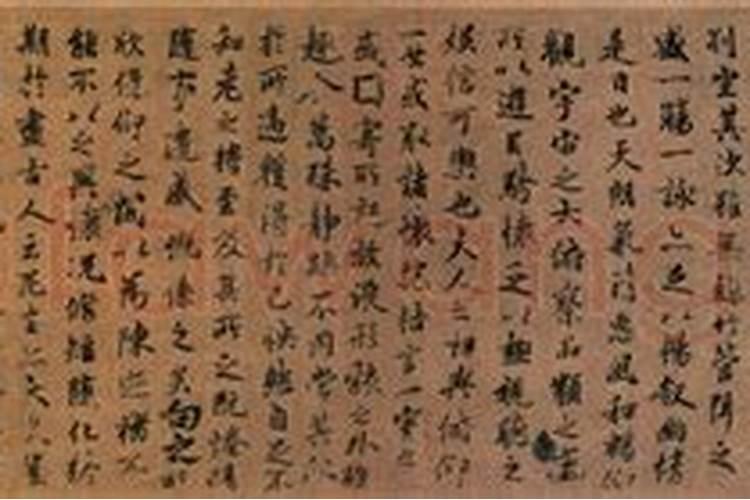 列坐其次雖無絲竹管弦之
盛一觴一詠亦足以暢敘幽情
是日也天朗氣清惠風和暢仰
觀宇宙之大俯察品類之盛
所以遊目騁懷足以極視聽之
娛信可樂也夫人之相與俯仰
一世或取諸懷抱悟言一室之
或因寄所託放浪形骸之外雖
趣舍萬殊靜躁不同當其欣
於所遇暫得於己快然自足不
知老之將至及其所之既惓情
隨事遷感慨係之矣向之所
欣俛仰之閒以為陳迹猶不
能不以之興懷況脩短隨化終
期於盡古人云死生亦大矣豈